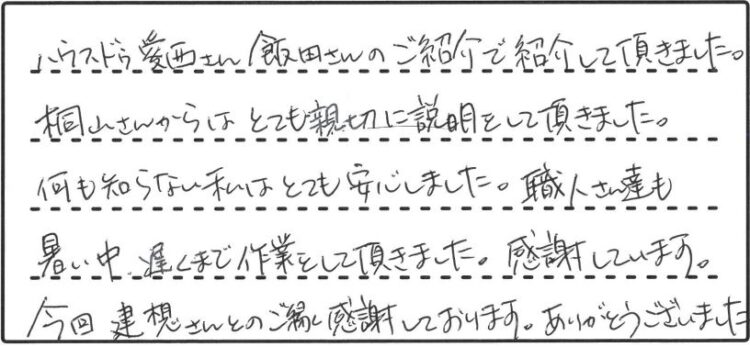 ハウスドゥ愛西さん飯田さんのご紹介で紹介して頂きました。
桐山さんからはとても親切に説明をして頂きました。
何も知らない私はとても安心しました。職人さん達も
暑い中、遅くまで作業をして頂きました。感謝しています。
今回建想さんとのご縁に感謝しております。ありがとうございました